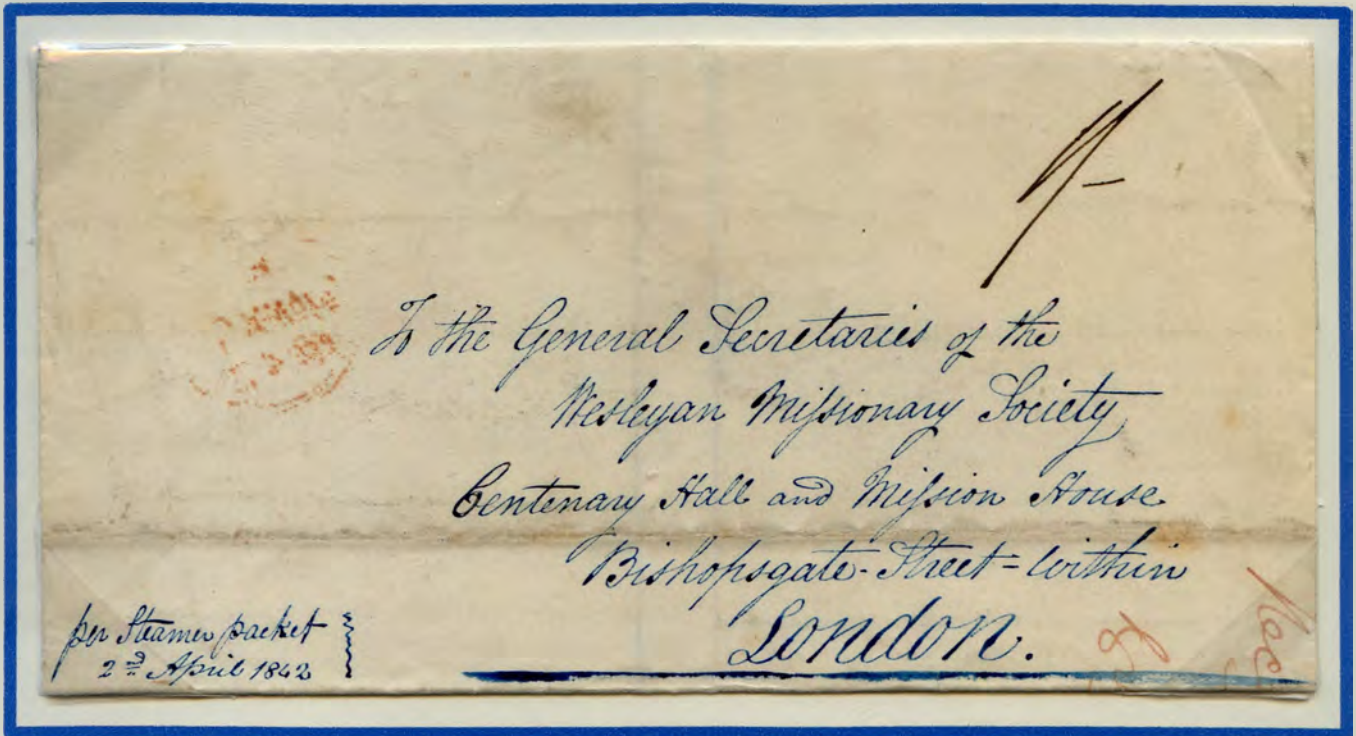 1/-
To the General Secretaries of the
Wesleyan Missionary Society
Centenary Hall and Mission House
Bishopsgate-Street=within
London.
per Steamer packet
2nd April 1842